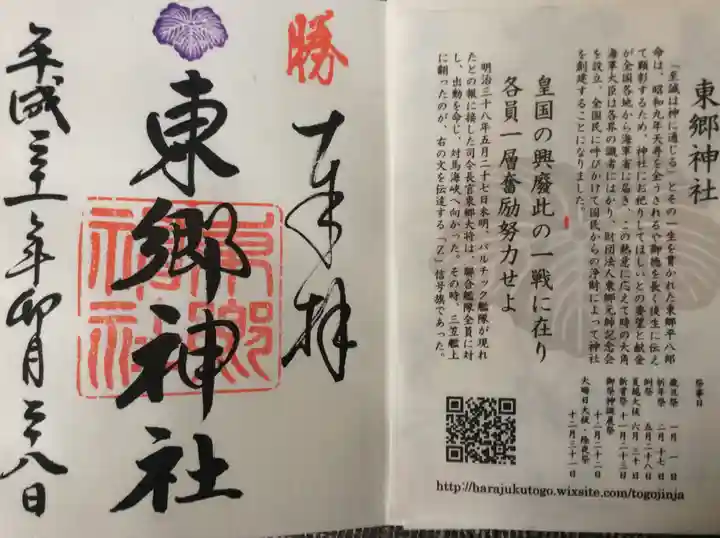 東郷神社
「至誠は神に通じる」とその一生を貫かれた東郷平八郎
命は、昭和九年天寿を全うされるや御徳を長く後生に伝え
て顕彰するため、神社にお祀りしてほしいとの要望と献金
が全国各地から海軍省に届き、この熱意に応えて時の大角
海軍大臣は各界の識者にはかり、財団法人東郷元帥記念会
を設立、全国民に呼びかけて国民からの浄財によって神社
を創建することになりました。
皇国の興廃此の一戦に在り
各員一層奮励努力せよ
明治三十八年五月二十七日未明、バルチック艦隊が現れ
たとの報に接した司令長官東郷大将は、聯合艦隊全員に対
し、出動を命じ、対馬海峡へ向かった。その時、三笠艦上
に翻ったのが、右の文を伝達する「Z」信号旗であった。
祭事日
歳旦祭 一月 一日
祈年祭 二月 十七日
例祭 五月二十八日
夏越大祓 六月 三十日
新嘗祭 十一月二十三日
御祭神誕辰祭
十二月二十二日
大晦日大祓・除夜祭
十二月三十一日
http://harajukutogo.wixsite.com/togojinja
勝
奉拝
東郷神社
東郷神社
平成三十一年卯月二十八日